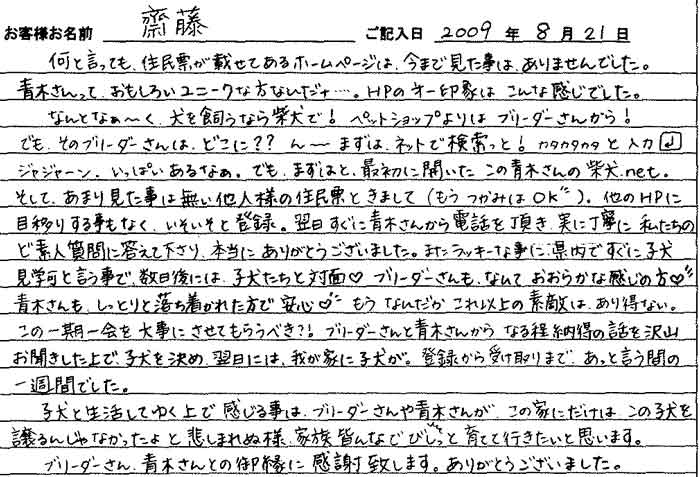 お客様お名前 齋藤 ご記入日 2009年8月21日
何と言っても、住民票が載せてあるホームページは、今まで見た事は、ありませんでした。
青木さんって、おもしろいユニークな方なんだナ…。HPの第一印象は こんな感じでした。
なんとなぁ〜く、犬を飼うなら柴犬で！ ペットショップよりは ブリーダーさんから！
でも、そのブリーダーさんは、どこに？？ ん〜 まずは、ネットで検索っと！カタカタカタ と 入力↵
ジャジャーン。いっぱいあるなぁ。でも、まずはと、最初に開いた この青木さんの 柴犬.net。
そして、あまり見た事は無い他人様の住民票ときまして（もう つかみは OK"）。他のHPに
目移りする事もなく、いそいそと登録。翌日すぐに青木さんから電話を頂き、実に丁寧に 私たちの
ど素人質問に答えて下さり、本当に ありがとうございました。またラッキーな事に県内ですぐに子犬
見学可と言う事で、数日後には、子犬たちと対面♡ ブリーダーさんも、なんて おおらかな感じの方♡"
青木さんも、しっとりと落ち着かれた方で 安心♡" もう なんだか これ以上の素敵は、あり得ない。
この一期一会を 大事にさせてもらうべき?! ブリーダーさんと青木さんから なる程納得の話を沢山
お聞きした上で、子犬を決め、翌日には、我が家に子犬が。登録から受け取りまで、あっと言う間の
一週間でした。
子犬と生活してゆく上で 感じる事は、ブリーダーさんや青木さんが、この家にだけは、この子犬を
譲るんじゃなかったよ と 悲しまれぬ様、家族皆んなで びしっと 育てて行きたいと思います。
ブリーダーさん、青木さんとの御縁に 感謝致します。ありがとうございました。